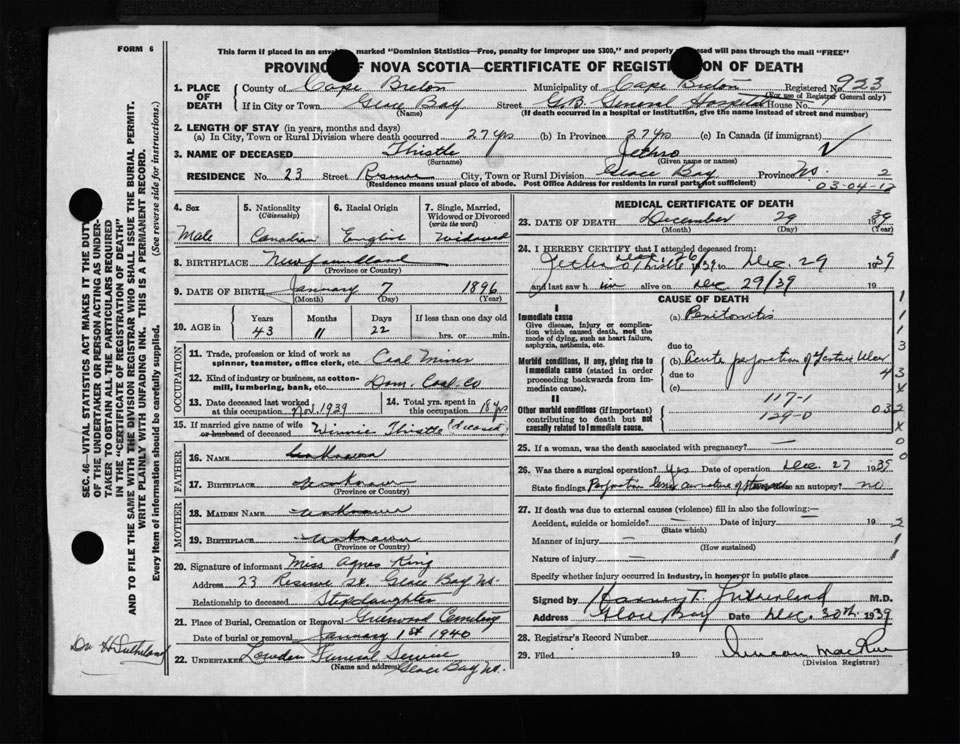 FORM 6
This form if placed in an marked "Dominion Statistics—Free, penalty for improper use $300," and properly will pass through the mail "FREE"
PROVINCE OF NOVA SCOTIA—CERTIFICATE OF REGISTRATION OF DEATH
1. PLACE OF DEATH
County of Cape Breton Municipality of Cape Breton Registered No. 923
(For use of Registrar General only)
If in City or Town Glace Bay Street G.B. General Hospital House No.
(Name) (If death occurred in a hospital or institution, give the name instead of street and number)
2. LENGTH OF STAY (in years, months and days)
(a) In City, Town or Rural Division where death occurred 27 yrs (b) In Province 27 yrs (c) In Canada (if immigrant)
3. NAME OF DECEASED Thistle Jethro
(Surname) (Given name or names)
RESIDENCE No. 23 Street City, Town or Rural Division Glace Bay Province NS. 2
(Residence means usual place of abode. Post Office Address for residents in rural parts not sufficient) 03-04-12
4. Sex
Male
5. Nationality (Citizenship)
Canadian
6. Racial Origin
English
7. Single, Married, Widowed or Divorced (write the word)
Widowed
8. BIRTHPLACE Newfoundland
(Province or Country)
9. DATE OF BIRTH January 7 1896
(Month) (Day) (Year)
10. AGE in Years Months Days If less than one day old
43 11 22 hrs. or min.
OCCUPATION
11. Trade, profession or kind of work as spinner, teamster, office clerk, etc. Coal Miner
12. Kind of industry or business, as cotton-mill, lumbering, bank, etc. Dom. Coal Co
13. Date deceased last worked at this occupation Nov. 1939
14. Total yrs. spent in this occupation 18 yrs
15. If married give name of wife or husband of deceased Winnie Thistle (deceased)
FATHER
16. Name unknown
17. Birthplace unknown
(Province or Country)
MOTHER
18. Maiden Name unknown
19. Birthplace unknown
(Province or Country)
20. Signature of informant Miss Agnes King
Address 23 Reserve St. Glace Bay NS.
Relationship to deceased Stepdaughter
21. Place of Burial, Cremation or Removal Greenwood Cemetery
Date of burial or removal January 1st 1940
22. UNDERTAKER Lowden Funeral Service
(Name and address) Glace Bay NS.
MEDICAL CERTIFICATE OF DEATH
23. DATE OF DEATH December 29 1939
(Month) (Day) (Year)
24. I HEREBY CERTIFY that I attended deceased from:
Jethro Thistle Dec. 26/39 to Dec. 29 1939
and last saw him alive on Dec 29/39 19
CAUSE OF DEATH
I
Immediate cause
Give disease, injury or complication which caused death, not the mode of dying, such as heart failure, asphyxia, asthenia, etc.
(a) Peritonitis
due to
Morbid conditions, if any, giving rise to immediate cause (stated in order proceeding backwards from immediate cause).
(b) Acute perforation of Gastric Ulcer
due to
(c)
117-1
II
Other morbid conditions (if important) contributing to death but not causally related to immediate cause.
129-0
25. If a woman, was the death associated with pregnancy? —
26. Was there a surgical operation? Yes Date of operation Dec. 27 1939
State findings Perforation lesser curvature of stomach an autopsy? no
27. If death was due to external causes (violence) fill in also the following:—
Accident, suicide or homicide? — Date of injury 19
(State which)
Manner of injury —
(How sustained)
Nature of injury —
Specify whether injury occurred in industry, in home, or in public place
Signed by Harvey T. Sutherland M.D.
Address Glace Bay Date Dec. 30th 1939
28. Registrar's Record Number
29. Filed 19 Duncan MacRae
(Division Registrar)
SEC. 46—VITAL STATISTICS ACT MAKES IT THE DUTY OF THE UNDERTAKER OR PERSON ACTING AS UNDERTAKER TO OBTAIN ALL THE PARTICULARS REQUIRED IN THE "CERTIFICATE OF REGISTRATION OF DEATH"
AND TO FILE THE SAME WITH THE DIVISION REGISTRAR WHO SHALL ISSUE THE BURIAL PERMIT.
WRITE PLAINLY WITH UNFADING INK. THIS IS A PERMANENT RECORD.
Every item of information should be carefully supplied. (See reverse side for instructions.)
Dr H Sutherland